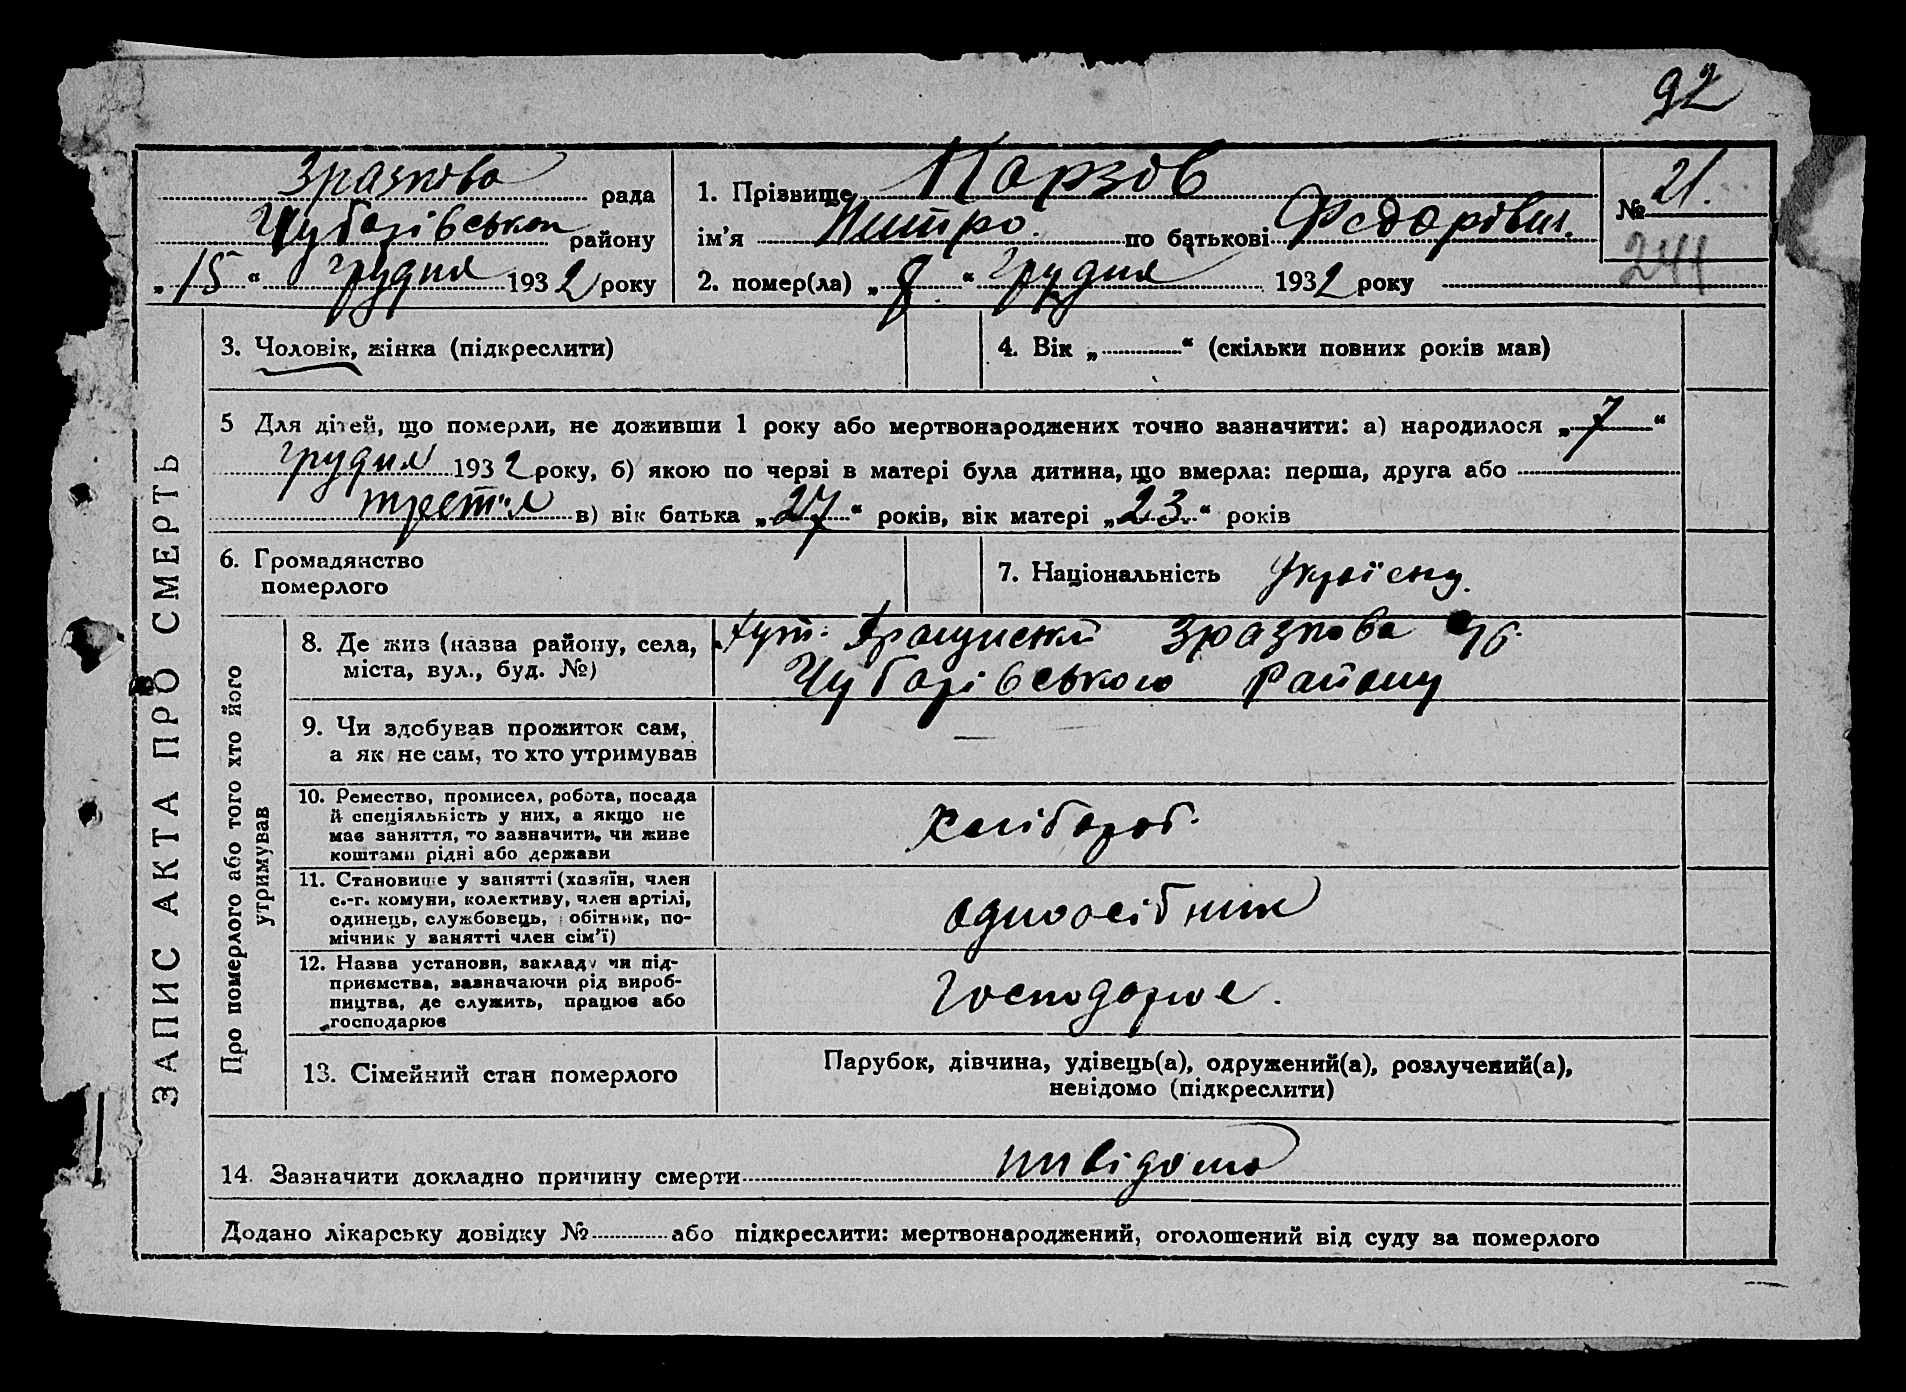 92
Зразкова рада
Чубарівського району
„15“ грудня 1932 року
1. Прізвище
ім’я Дмитро по батькові Федорович.
2. помер(ла) „8“ грудня 1932 року
№ 21.
244
ЗАПИС АКТА ПРО СМЕРТЬ
3. Чоловік, жінка (підкреслити)
4. Вік „ “ (скільки повних років мав)
5 Для дітей, що померли, не доживши 1 року або мертвонароджених точно зазначити: а) народилося „7“
грудня 1932 року, б) якою по черзі в матері була дитина, що вмерла: перша, друга або
третя в) вік батька „27“ років, вік матері „23“ років
6. Громадянство
померлого
7. Національність
Про померлого або того хто його
утримував
8. Де жив (назва району, села,
міста, вул., буд. №)
хут. Зразкова
Чубарівського Району
9. Чи здобував прожиток сам,
а як не сам, то хто утримував
—
10. Ремество, промисел, робота, посада
й спеціяльність у них, а якщо не
мав заняття, то зазначити, чи живе
коштами рідні або держави
Хлібороб.
11. Становище у занятті (хазяїн, член
с.-г. комуни, колективу, член артілі,
одинець, службовець, робітник, по-
мічник у занятті член сім’ї)
одноосібник
12. Назва установи, закладу чи під-
приємства, зазначаючи рід вироб-
ництва, де служить, працює або
господарює
Господарює.
13. Сімейний стан померлого
Парубок, дівчина, удівець(а), одружений(а), розлучений(а),
невідомо (підкреслити)
14. Зазначити докладно причину смерти невідомо
Додано лікарську довідку № або підкреслити: мертвонароджений, оголошений від суду за померлого